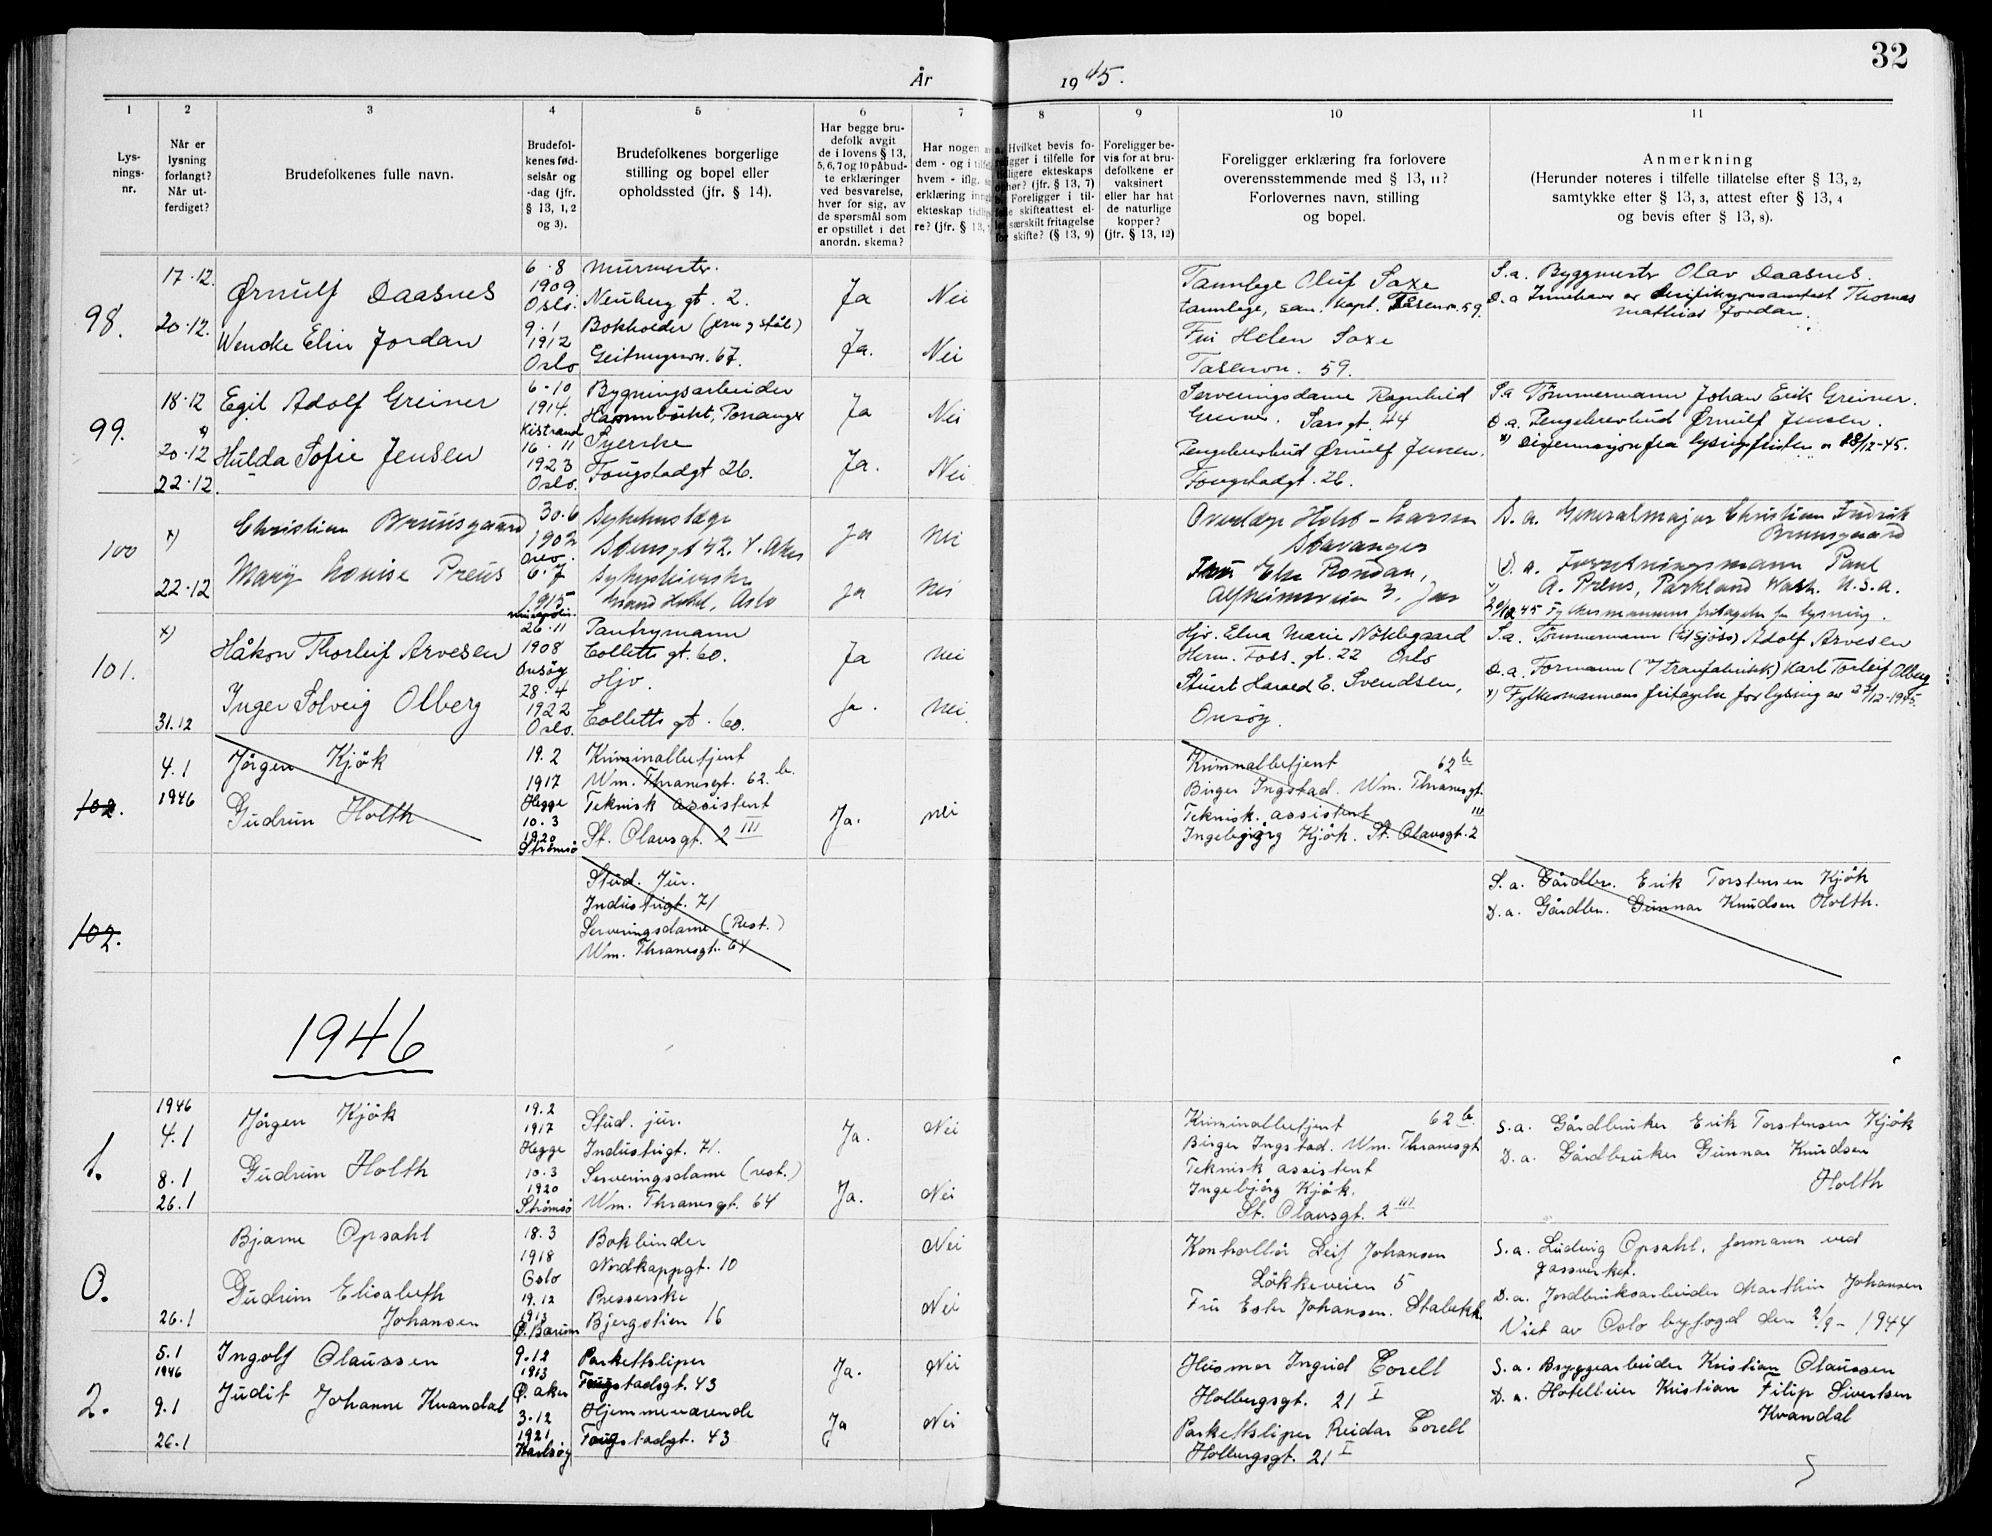 32
År 1945.
1 2 3 4 5 6 7 8 9 10 11
Lys-
nings-
nr.
Når er
lysning
forlangt?
Når ut-
ferdiget?
Brudefolkenes fulle navn.
Brudefol-
kenes fød-
selsår og
-dag (jfr.
§ 13, 1, 2
og 3).
Brudefolkenes borgerlige
stilling og bopel eller
opholdssted (jfr. § 14).
Har begge bru-
defolk avgit
de i lovens § 13,
5, 6, 7 og 10 påbud-
te erklæringer
ved besvarelse,
hver for sig, av
de spørsmål som
er opstillet i det
anordn. skema?
Har nogen
dem - og i
hvem - iflg.
erklæring
ekteskap
re? (jfr. § 13,
Hvilket bevis fo-
religger i tilfelle for
tidligere ekteskaps
ophør? (jfr. § 13, 7)
Foreligger i til-
felle skifteattest el-
ler særskilt fritagelse
for skifte? (§ 13, 9)
Foreligger be-
vis for at bru-
defolkene er
vaksinert
eller har hat
de naturlige
kopper?
(jfr. § 13, 12)
Foreligger erklæring fra forlovere
overensstemmende med § 13, 11?
Forlovernes navn, stilling
og bopel.
Anmerkning
(Herunder noteres i tilfelle tillatelse efter § 13, 2,
samtykke efter § 13, 3, attest efter § 13, 4
og bevis efter § 13, 8).
98.
17.12.
20.12.
Ørnulf Daasnes
Wencke Elin Jordan
6.8
1909
Oslo.
9.1
1912
Oslo
Murmester.
Neuberg gt. 2.
Bokholder (jern og stål)
Geitmyrsvn. 67.
Ja
Ja.
Nei
Nei
Tannlege Oluf Saxe
tannlege, san. kapt. Tåsenvn. 59.
Fru Helen Saxe
Tåsenvn. 59.
S.a. Byggmester Olav Daasnes.
D.a Innehaver av Thomas
Mathias Jordan.
99.
18.12
x)
20.12
22.12.
Egil Adolf Greiner
Hulda Sofie Jensen
6-10
1914.
Kistrand
16-11
1923
Oslo.
Bygningsarbeider
Hamnbukt, Porsanger
Syerske
Fougstadgt 26.
Ja
Ja.
Nei
Nei
Serveringsdame Ragnhild
Greiner, Sarsgt. 44
Pengebrevbud Ørnulf Jensen.
Fougstadgt. 26.
S.a Tömmermann Johan Erik Greiner.
D.a Pengebrevbud Ørnulf Jensen.
x) Dispensasjon fra lysingsfristen av 18/12-45.
100
x)
22.12
Christian Brunsgaard
Mary Louise Preus
30.6
1902
Oslo.
6.7
1915
Sykehuslæge
Stensgt 42. V. Aker
Sykepleierske
Grand Hotel, Oslo
Ja
Ja
Nei
Nei
Overlæge Holst-Larsen
Stavanger
Fru Else Rondan,
Alfheimveien 3, Jar
S.a. Generalmajor Christian Fredrik
Brunsgaard
D.a. Forretningsmann Paul
A. Preus, Parkland Wash. U.S.A.
x)
20/12 45 Fylkesmannens fritagelse for lysning.
101.
x)
31.12
Håkon Thorleif Arvesen
Inger Solveig Olberg
26.11
1908
Onsöy
28.4
1922
Oslo.
Pantrymann
Colletts gt. 60.
Hjv.
Colletts gt. 60.
Ja
Ja.
Nei
Nei
Hjv. Elna Marie Nöklegaard
Herm. Foss gt. 22 Oslo
Stuert Harald E. Svendsen,
Onsöy.
S.a. Tömmermann (til sjöss) Adolf Arvesen
D.a. Formann (Ytranfabrikk) Karl Torleif Olberg
x) Fylkesmannens fritagelse for lysing av 27/12-1945.
102.
4.1
1946
Jörgen Kjök
Gudrun Holth
19.2
1917
Hegge
10.3
1920
Strömsö
Kriminalbetjent
Wm. Thranesgt. 62 b.
Teknisk assistent
St. Olavsgt. 2 III
Ja.
Nei
Kriminalbetjent 62 b
Birger Ingstad. Wm. Thranesgt.
Teknisk. assistent III
Ingebjörg Kjök. St. Olavsgt. 2
102.
Stud. Jur.
Industrigt. 71
Serveringsdame (Rest.)
Wm. Thranesgt. 64
S.a. Gårdbr. Erik Torstensen Kjök
D.a. Gårdbr. Gunnar Knudsen Holth.
1946
1.
1946
4.1
8.1
26.1
Jörgen Kjök
Gudrun Holth
19.2
1917
Hegge
10.3
1920
Strömsö
Stud. jur.
Industrigt. 71.
Serveringsdame (rest.)
Wm. Thranesgt. 64
Ja.
Ja.
Nei
Nei
Kriminalbetjent 62 b.
Birger Ingstad. Wm. Thranesgt
Teknisk assistent
Ingebjörg Kjök.
St. Olavsgt. 2 III
S.a. Gårdbruker Erik Torstensen Kjök
D.a. Gårdbruker Gunnar Knudsen
Holth
0.
26.1
Bjarne Opsahl
Gudrun Elisabeth
Johansen
18.3
1918
Oslo
19.12
1913
Ö. Bærum
Bokbinder
Nordkappgt. 10
Presserske
Bjergstien 16
Nei
Nei
Kontrollör Leif Johansen
Lökkeveien 5
Fru Ester Johansen. Stabekk
S.a. Ludvig Opsahl, formann ved
gassverket.
D.a. Jordbruksarbeider Marthin Johansen
Viet av Oslo byfogd den 2/9-1944
2.
5.1
1946
9.1
26.1
Ingolf Claussen
Judit Johanne Kvandal
9.12
1913
Ö. Aker
3.12
1921
Karlsöy
Parkettsliper
Fougstadsgt. 43
Hjemmeværende
Fougstadgt. 43
Ja.
Ja
Nei
Nei
Husmor Ingrid Corell
Holbergsgt. 21 I
Parkettsliper Reidar Corell
Holbergsgt. 21 I
S.a. Bryggearbeider Kristian Claussen
D.a. Hotelleier Kristian Filip Sivertsen
Kvandal